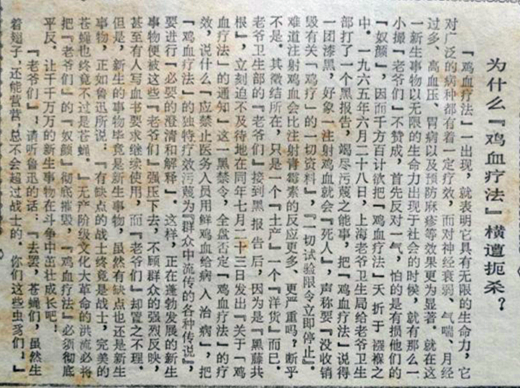 为什么『鸡血疗法』横遭扼杀？
『鸡血疗法』一出现，就表明它具有无限的生命力，它
对广泛的病种都有着一定疗效，而对神经衰弱、气喘、月经
过多、高血压、胃病以及预防麻疹等效果更为显著。就在这
一新生事物以无限的生命力出现于社会的时候，就有那么一
小撮『老爷们』不赞成，首先反对一气，怕的是有损他们的
『奴颜』，因而千方百计欲把『鸡血疗法』夭折于襁褓之
中。一九六五年六月二十八日，上海老爷卫生局给老爷卫生
部打了一个黑报告，竭尽污蔑之能事，把『鸡血疗法』说得
一团漆黑，好象一注射鸡血就会『死人』，声称要『没收销
毁有关『鸡疗』的一切资料』，『一切试验限令立即停止』。
难道注射鸡血会比注射青霉素的反应更多、更严重吗？断乎
不是。其徵结所在，只是一个『土产』一个『洋货』而已。
老爷卫生部的『老爷们』接到黑报告后，因为是『黑藤共
根』，立刻迫不及待地在同年七月二十三日发出『关于「鸡
血疗法」的通知』这一黑禁令，全盘否定『鸡血疗法』的疗
效，说什么『应禁止医务人员用鲜鸡血给病人治病』，把
『鸡血疗法』的独特疗效污蔑为『群众中流传的各种传说』，
要进行『必要的澄清和解释』。这样，正在蓬勃发展的新生
事物便被这些『老爷们』强压下去，不顾群众的强烈反映，
甚至有人写血书要求继续使用，而『老爷们』却管之不理。
但是，新生的事物毕竟是新生事物，虽然有缺点也还是新生
事物，正如鲁迅所说：『有缺点的战士终竟是战士，完美的
苍蝇也终竟不过是苍蝇。』无产阶级文化大革命的洪流必将
把『老爷们』的『奴颜』彻底摧毁，『鸡血疗法』必须彻底
平反，让千千万万的新生事物在斗争中茁壮成长吧！
『老爷们』，请听鲁迅的话：『去罢，苍蝇们，虽然生
着翅子，还能营营，总不会超过战士的。你们这些虫豸们！』